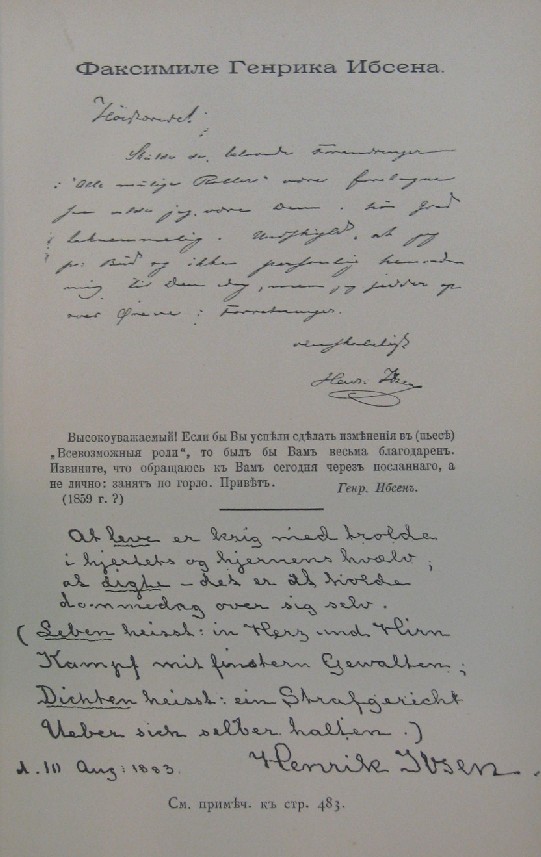 Факсимиле Генрика Ибсена.
i "Alle mulige Roller"
jeg være Dem
at jeg
og ikke personlig
mig til Dem
over Ørene i Forretninger.
venskabeligst
Henr. Ibsen
Высокоуважаемый! Если бы Вы успѣли сдѣлать измѣненія въ (пьесѣ)
„Всевозможныя роли“, то былъ бы Вамъ весьма благодаренъ.
Извините, что обращаюсь къ Вамъ сегодня черезъ посланнаго, а
не лично: занятъ по горло. Привѣтъ.
Генр. Ибсенъ.
(1859 г. ?)
At leve er krig med trolde
i hjertets og hjernens hvælv;
at digte – det er at holde
dommedag over sig selv.
(Leben heisst: in Herz und Hirn
Kampf mit finstern Gewalten;
Dichten heisst: ein Strafgericht
Ueber sich selber halten.)
Aug: 1883.
Henrik Ibsen.
См. примѣч. къ стр. 483.